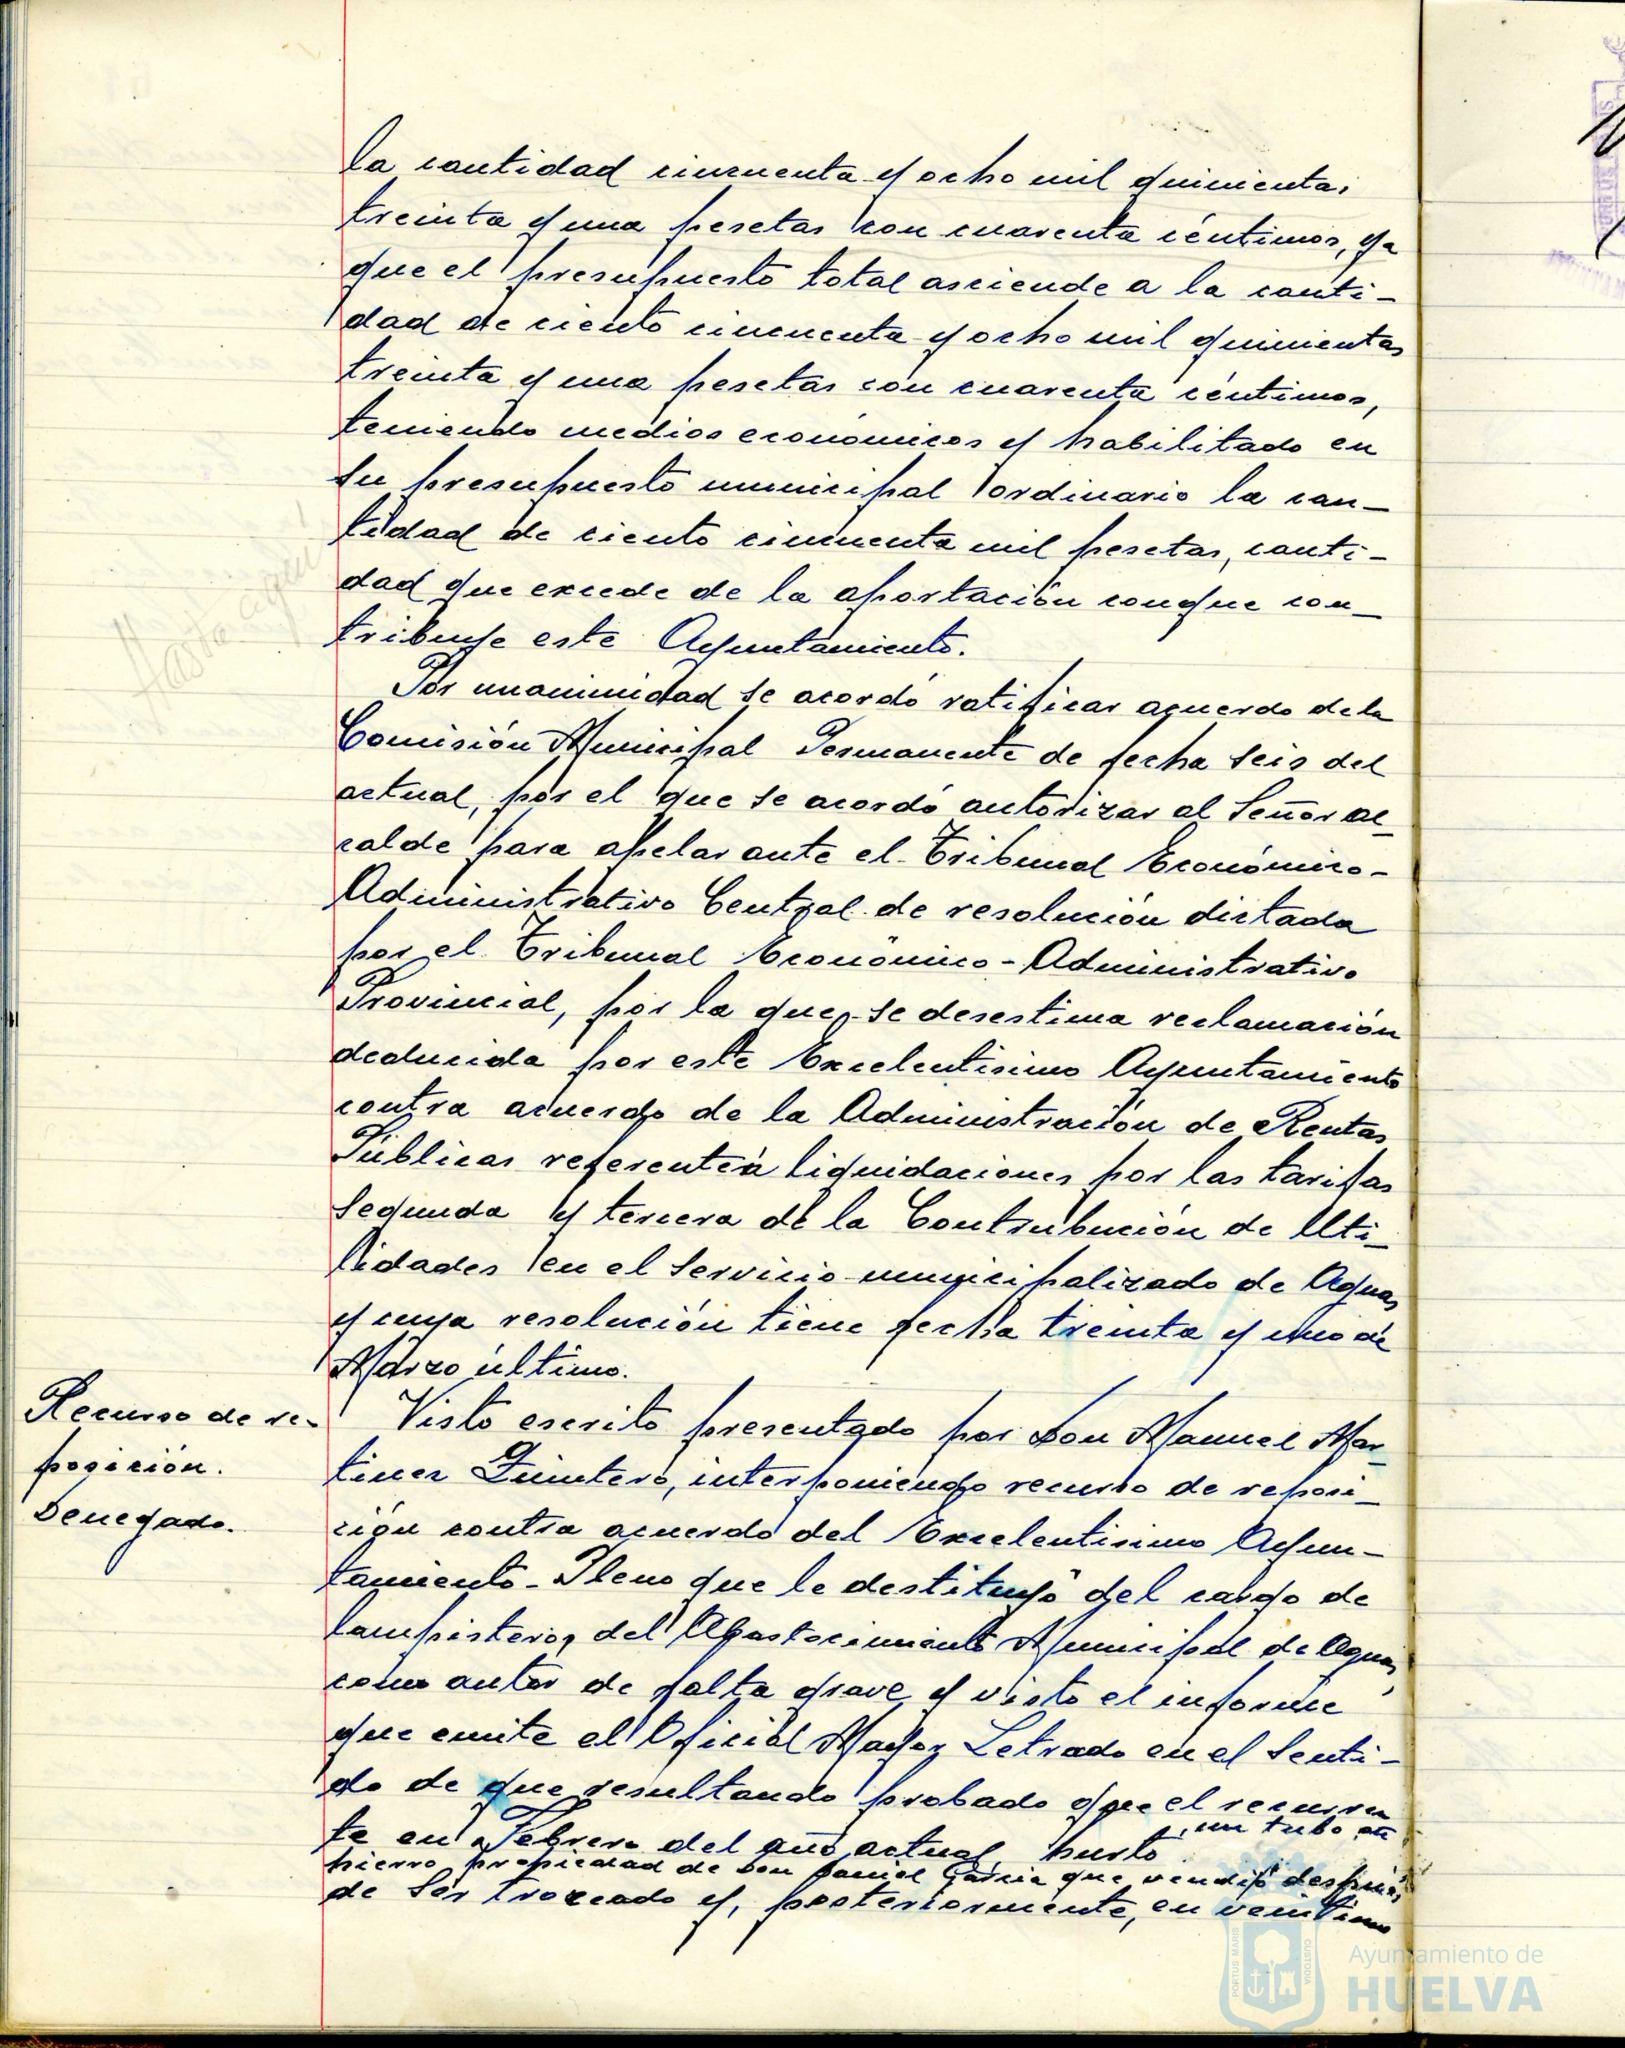 la cantidad cincuenta y ocho mil quinientas
treinta y una pesetas con cuarenta céntimos, ya
que el presupuesto total asciende a la canti-
dad de ciento cincuenta y ocho mil quinientas
treinta y una pesetas con cuarenta céntimos,
teniendo medios económicos y habilitado en
su presupuesto municipal ordinario la can-
tidad de ciento cincuenta mil pesetas, canti-
dad que excede de la aportación conque con-
tribuye este Ayuntamiento.
Hasta aquí
Por unanimidad se acordó ratificar acuerdo de la
Comisión Municipal Permanente de fecha seis del
actual, por el que se acordó autorizar al Señor al-
calde para apelar ante el Tribunal Económico-
Administrativo Central de resolución dictada
por el Tribunal Económico-Administrativo
Provincial, por la que se desestima reclamación
deducida por este Excelentisimo Ayuntamiento
contra acuerdo de la Administración de Rentas
Públicas referente a liquidaciones por las tarifas
segunda y tercera de la Contribución de Uti-
lidades en el servicio municipalizado de Aguas
y cuya resolución tiene fecha treinta y uno de
Marzo último.
Recurso de re-
posición.
Denegado.
Visto escrito presentado por Don Manuel Mar-
tinez Quintero, interponiendo recurso de reposi-
ción contra acuerdo del Excelentisimo Ayun-
tamiento-Pleno que le destituyó del cargo de
lampistero, del Abastecimiento Municipal de Aguas,
como autor de falta grave y visto el informe
que emite el Oficial Mayor Letrado en el senti-
do de que resultando probado que el recurren
te en Febrero del año actual, hurtó un tubo de
hierro propiedad de Don Daniel García que vendió después
de ser trozeado y, posteriormente, en veintiuno
PORTUS MARIS
CUSTODIA
Ayuntamiento de
HUELVA